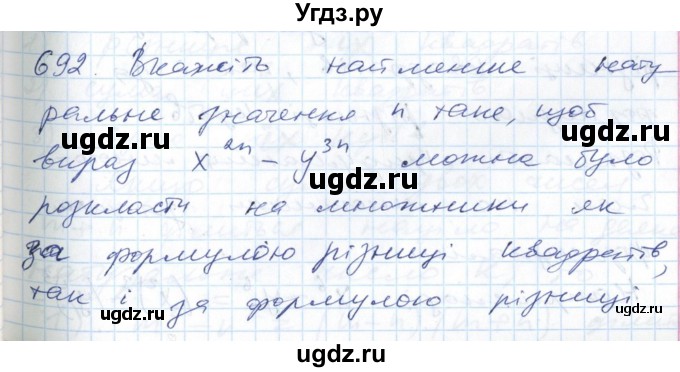 Угдз.ру
692. Вкажіть найменше нату
ральне значення n таке, щоб
ugdz.ru ugdz.ru
вираз x²ⁿ - y³ⁿ можна було
розкласти на множники як
ugdz.ru
за формулою різниці квадратів,
ugdz.ru ugdz.ru
так і за формулою різниці
ugdz.ru